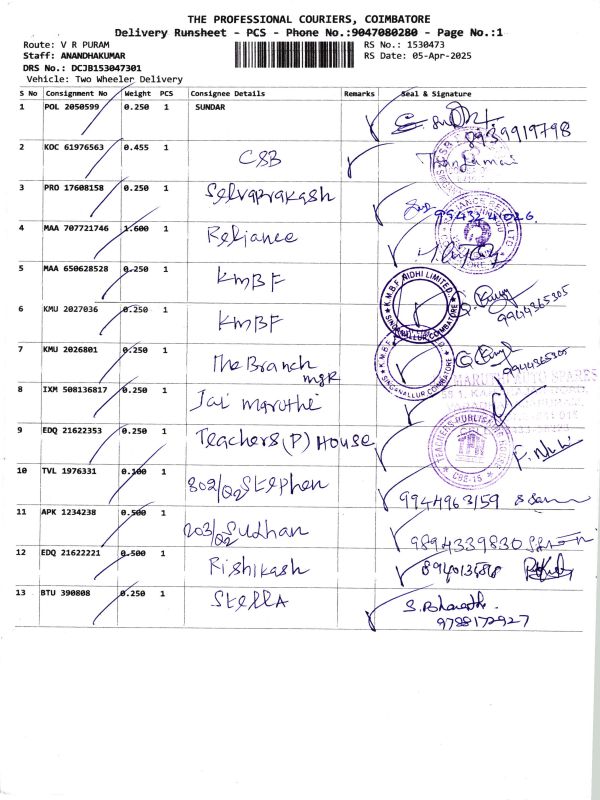 THE PROFESSIONAL COURIERS, COIMBATORE
Delivery Runsheet - PCS - Phone No.:9047080280 - Page No.:1
Route: V R PURAM
RS No.: 1530473
Staff: ANANDHAKUMAR
RS Date: 05-Apr-2025
DRS No.: DCJB153047301
Vehicle: Two Wheeler Delivery
S No Consignment No Weight PCS Consignee Details Remarks Seal & Signature
1 POL 2050599 0.250 1 SUNDAR
8939919798
2 KOC 61976563 0.455 1 CSB
3 PRO 17608158 0.250 1 Selvaprakash
9943241026
4 MAA 707721746 1.600 1 Reliance
5 MAA 650628528 0.250 1 KMBF
K.M.B.F. NIDHI LIMITED
SINGANALLUR COIMBATORE
9944365305
6 KMU 2027036 0.250 1 KMBF
7 KMU 2026801 0.250 1 The Branch mgR
K.M.B.F.
SINGANALLUR COIMBATORE
9944365305
8 IXM 508136817 0.250 1 Jai maruthi
9 EDQ 21622353 0.250 1 Teachers (P) House
TEACHER'S PUBLISHING
CBE-15
10 TVL 1976331 0.100 1 802/Q2 Stephen
9944963159
11 APK 1234238 0.500 1 203/Q2 Sudhan
9894339830
12 EDQ 21622221 0.500 1 Rishikash
13 BTU 390808 0.250 1 Stella
S. Bharathi
9788172927